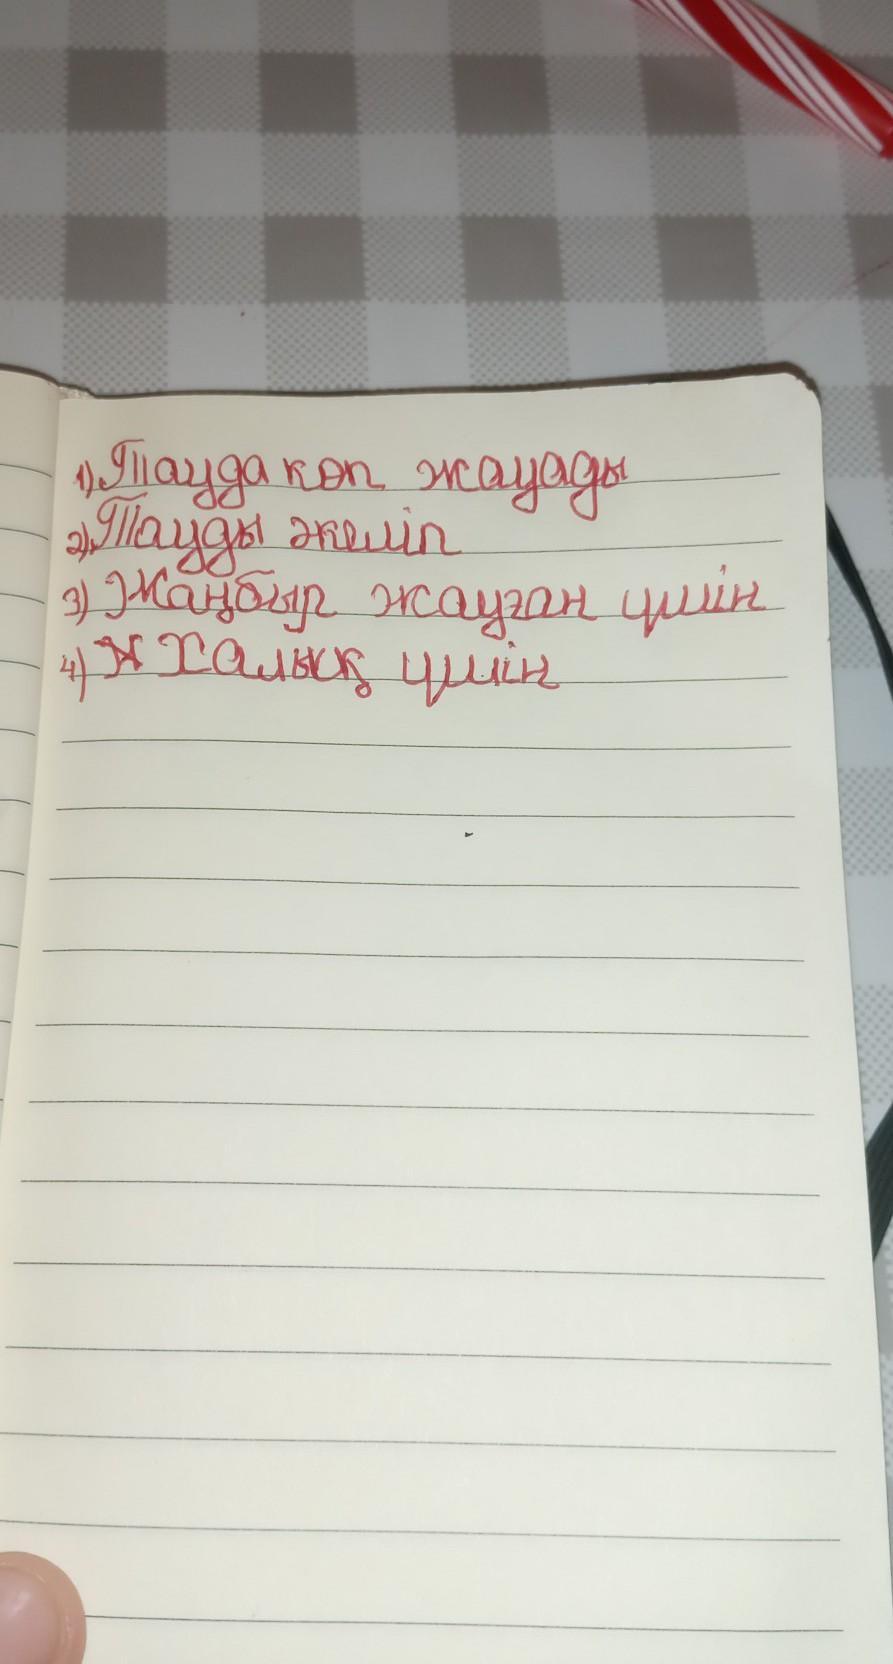 1) Тауда көп жауады
2) Тауды әкеліп
3) Жаңбыр жауған үшін
4) Халық үшін